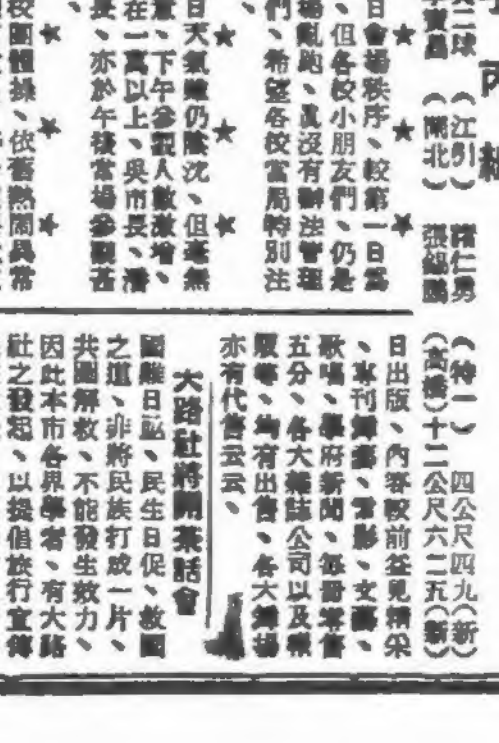 （江引）　諸仁勇
（閘北）　張錫麟
日會場秩序、較第一日為
、但各校小朋友們、仍是
場亂跑、眞沒有辦法管理
們、希望各校當局特別注
日天氣雖仍陰沈、但毫無
、下午參觀人數激增、
在一萬以上、吳市長、潘
長、亦於午後蒞場參觀甚
校團體操、依舊熱鬧異常
（特一）　四公尺四九（新）
（高橋）十二公尺六二五（新）
日出版、內容較前益見精采
、專刊舞、電影、文藝、
歌唱、學府新聞、每冊零售
五分、各大雜誌公司以及
等、均有出售、各大舞場
亦有代售云云、
大路社將開茶話會
國難日亟、民生日促、救國
之道、非將民族打成一片、
共圖解救、不能發生效力、
因此本市各界學者、有大路
社之發起、以提倡旅行宣傳